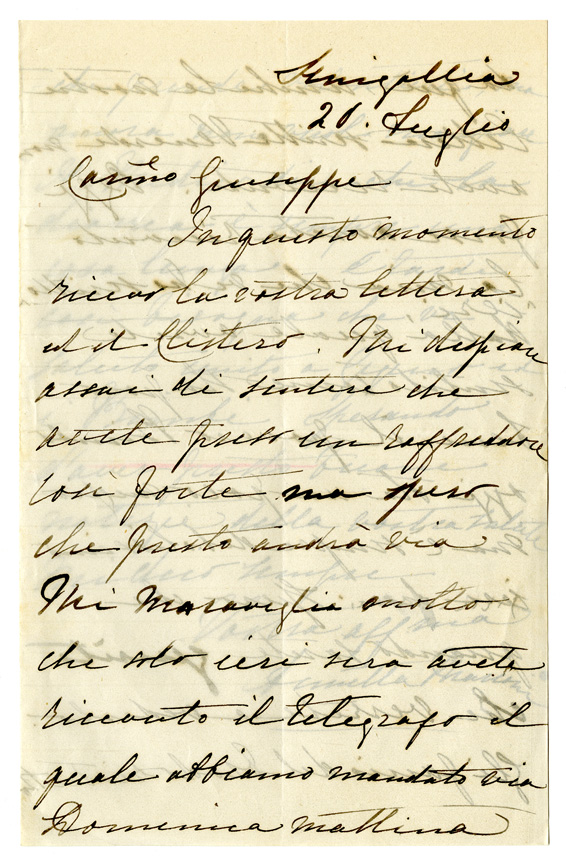 Senigallia
20. Luglio
Carmo Giuseppe
In questo momento
ricevo la vostra lettera
ed il Clistero. Mi dispiace
assai di sentire che
avete preso un raffreddore
così forte ma spero
che presto andrà via
Mi maraviglia molto
che solo ieri sera avete
ricevuto il telegrafo il
quale abbiamo mandato via
Domenica mattina